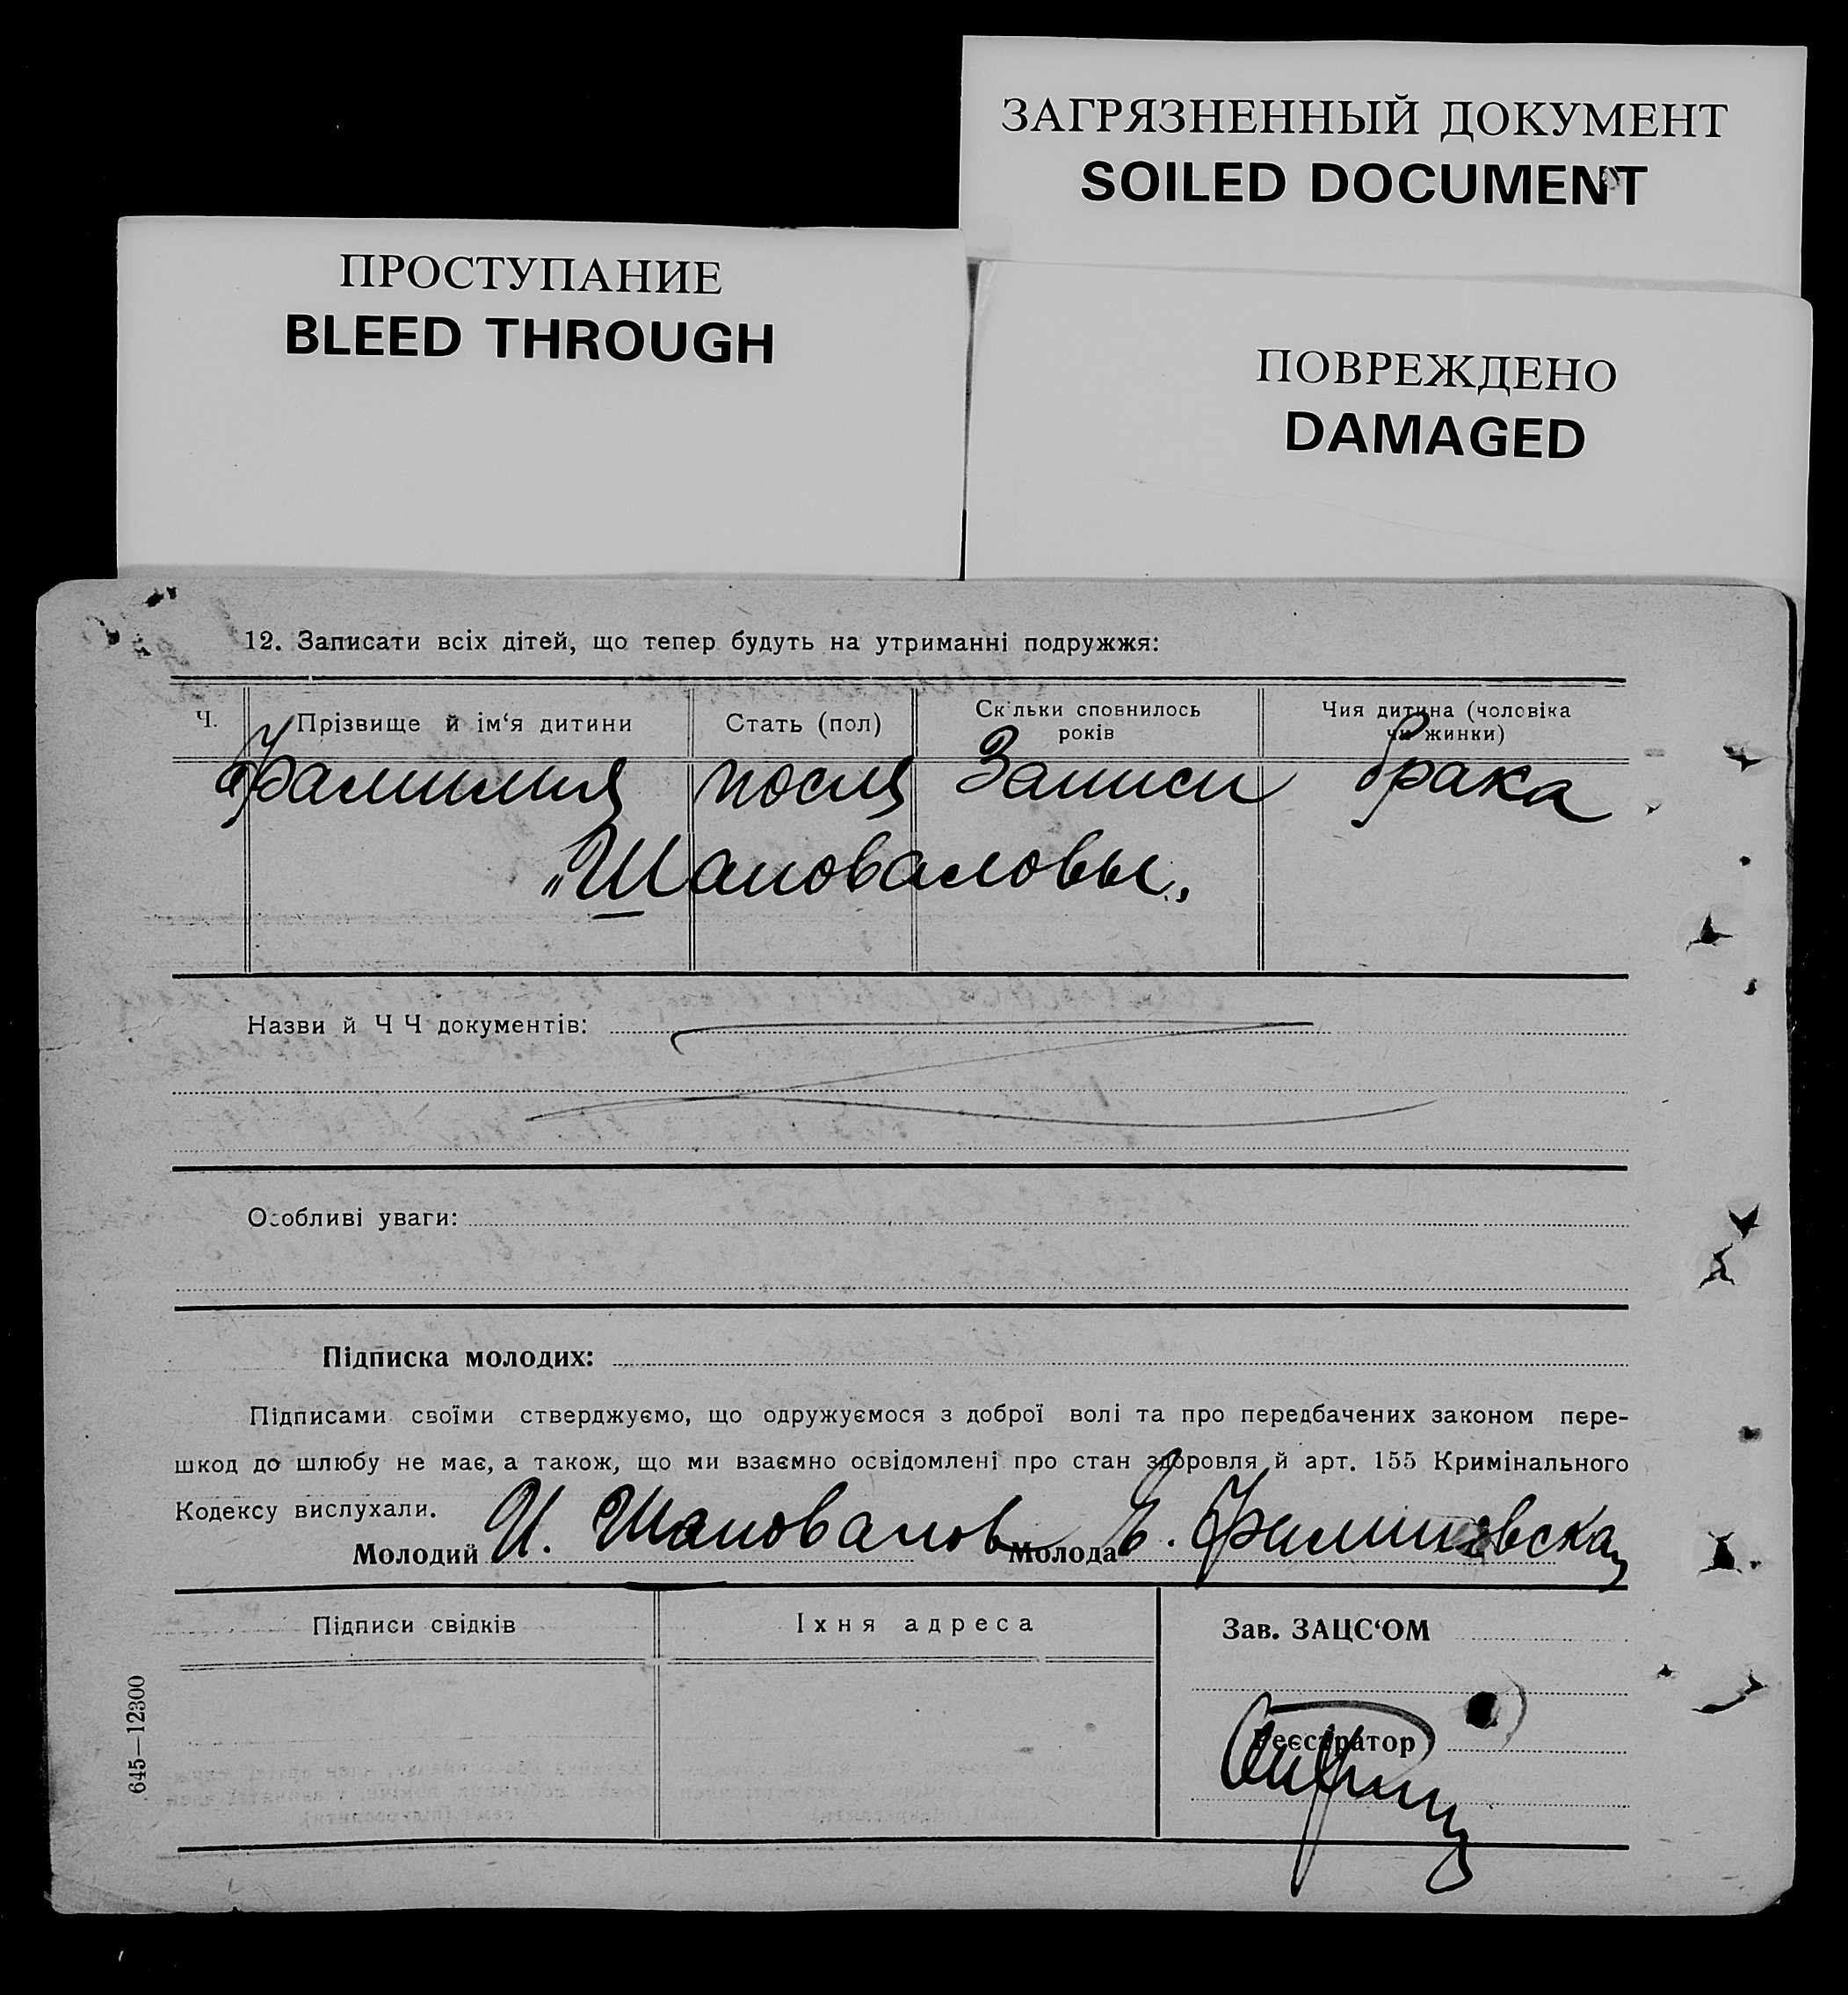 ЗАГРЯЗНЕННЫЙ ДОКУМЕНТ
SOILED DOCUMENT
ПРОСТУПАНИЕ
BLEED THROUGH
ПОВРЕЖДЕНО
DAMAGED
12. Записати всіх дітей, що тепер будуть на утриманні подружжя:
Ч. Прізвище й ім‘я дитини Стать (пол) Скільки сповнилось років Чия дитина (чоловіка чи жинки)
Фамилия после Записи брака
„Шаповаловы„
Назви й Ч Ч документів:
Особливі уваги:
Підписка молодих:
Підписами своїми стверджуємо, що одружуємося з доброї волі та про передбачених законом пере-
шкод до шлюбу не має, а також, що ми взаємно освідомлені про стан здоровля й арт. 155 Кримінального
Кодексу вислухали.
Молодий И. Шаповалов Молода
Підписи свідків Їхня адреса Зав. ЗАЦС‘ОМ
Реєстратор
645—12300